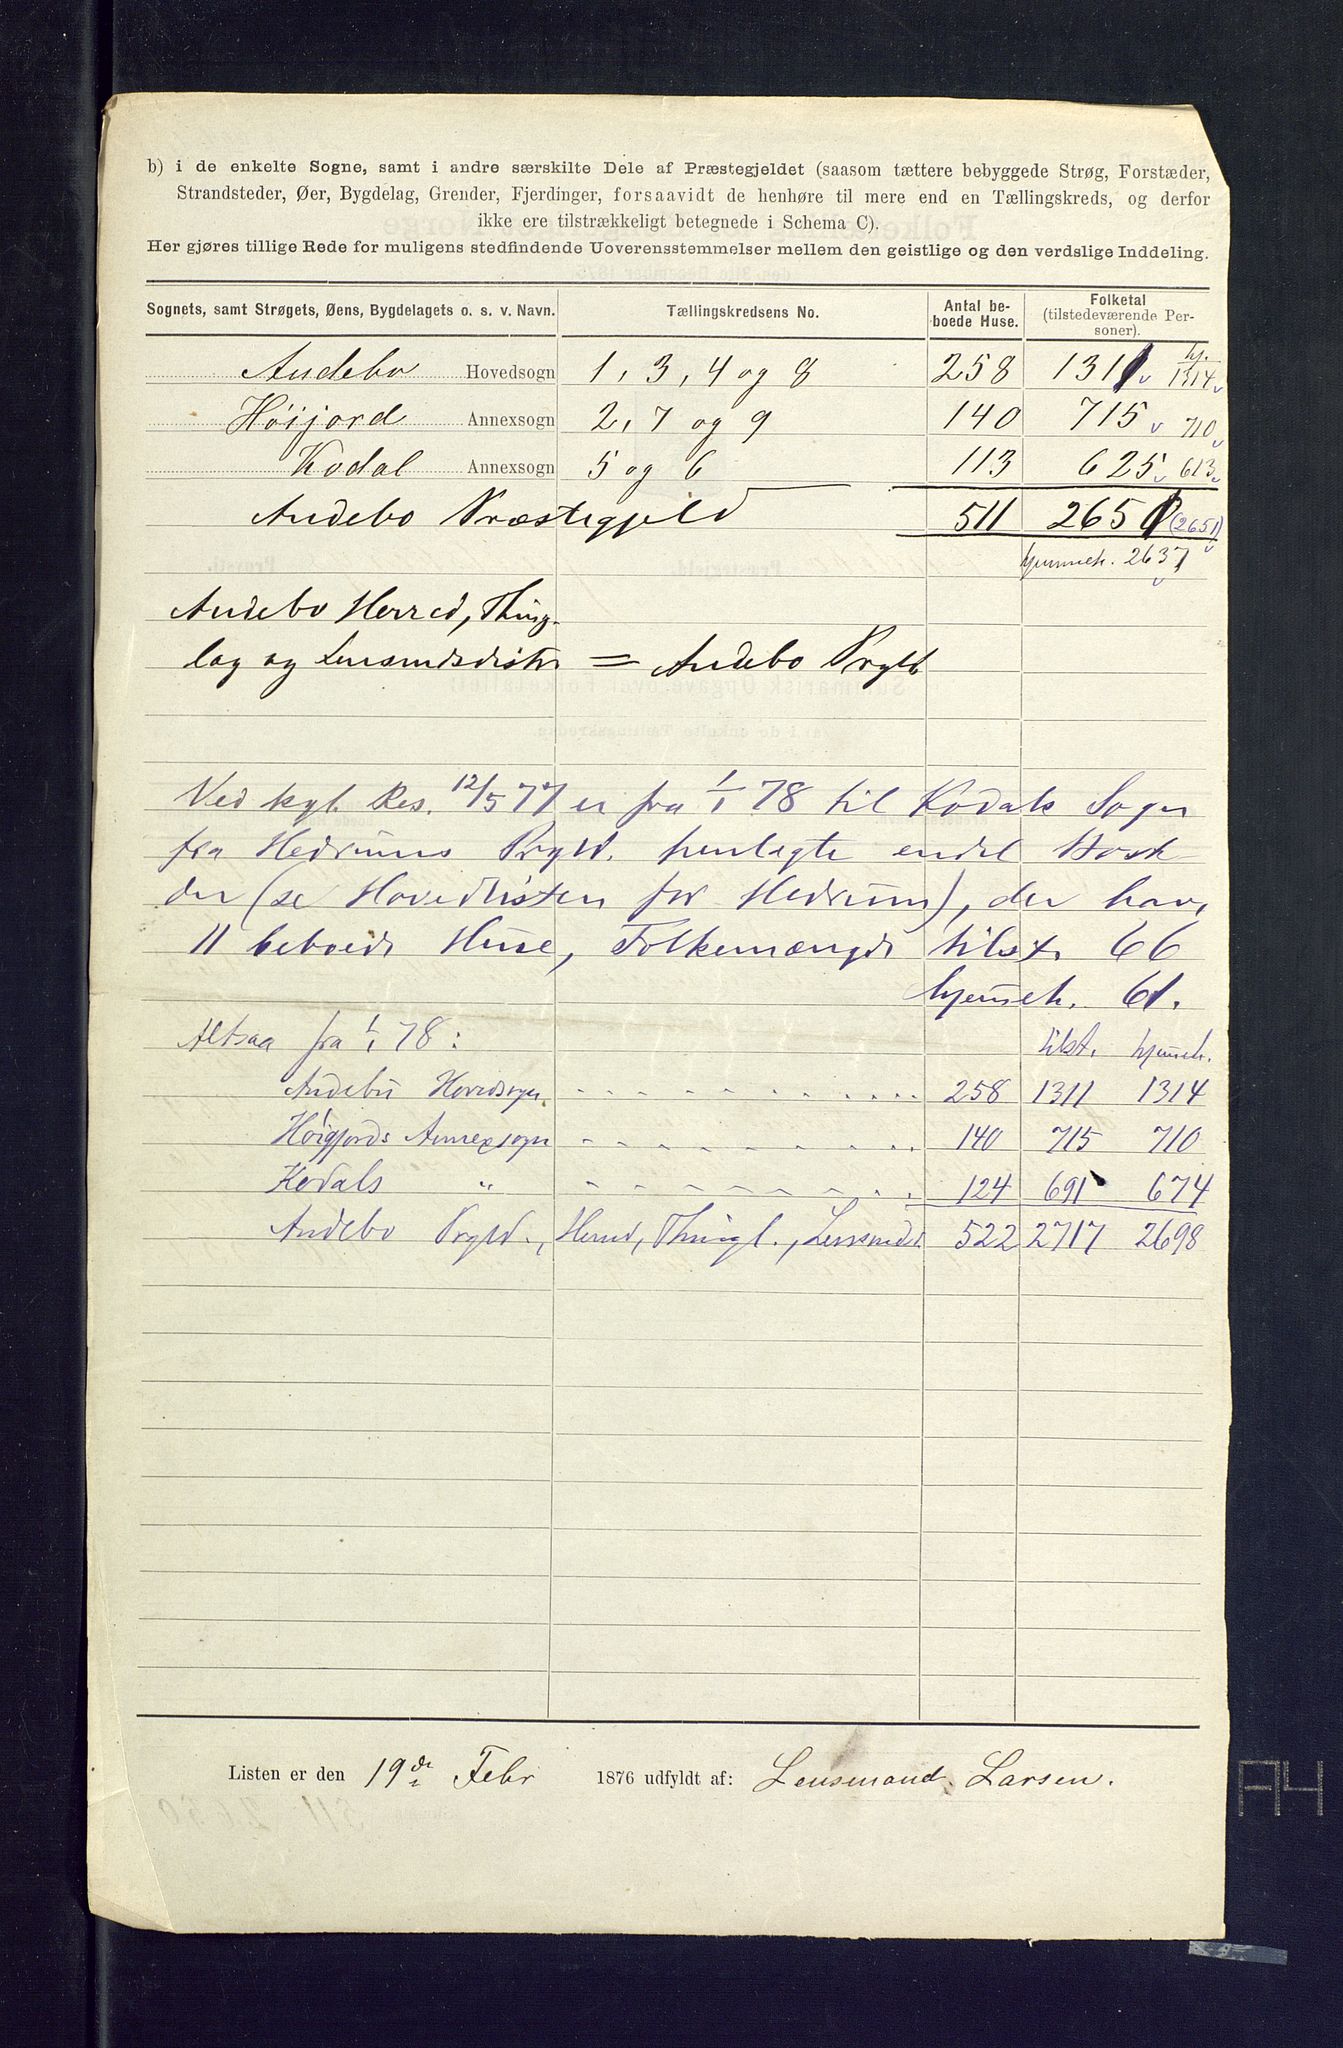 b) i de enkelte Sogne, samt i andre særskilte Dele af Præstegjeldet (saasom tættere bebyggede Strøg, Forstæder,
Strandsteder, Øer, Bygdelag, Grender, Fjerdinger, forsaavidt de henhøre til mere end en Tællingskreds, og derfor
ikke ere tilstrækkeligt betegnede i Schema C).
Her gjøres tillige Rede for muligens stedfindende Uoverensstemmelser mellem den geistlige og den verdslige Inddeling.
Sognets, samt Strøgets, Øens, Bygdelagets o. s. v. Navn. Tællingskredsens No. Antal beboede Huse. Folketal (tilstedeværende Personer).
hj.
Andebo Hovedsogn 1, 3, 4 og 8 258 1311 1314
Høijord Annexsogn 2, 7 og 9 140 715 710
Kodal Annexsogn 5 og 6 113 625 613
Andebo Præstegjeld 511 2651 (2651)
hjemmeh. 2637
Andebo Herred, Thing-
lag og Lensmdsdistr = Andebo Prgld
Ved kgl. Res. 12/5 77 er fra 1/1 78 til Kodals Sogn
fra Hedrums Prgld. henlagte endel
(se Hovedlisten for Hedrum), der hav,
11 beboede Huse, Folkemængde tilst. 66
hjemmeh. 61.
Altsaa fra 1/1 78: tilst. hjemmeh.
Andebu Hovedsogn 258 1311 1314
Høigjords Annexsogn 140 715 710
Kodals " 124 691 674
Andebo Prgld., Herred, Thingl., Lensmdsd. 522 2717 2698
Listen er den 19de Febr 1876 udfyldt af: Lensmand Larsen.
A4